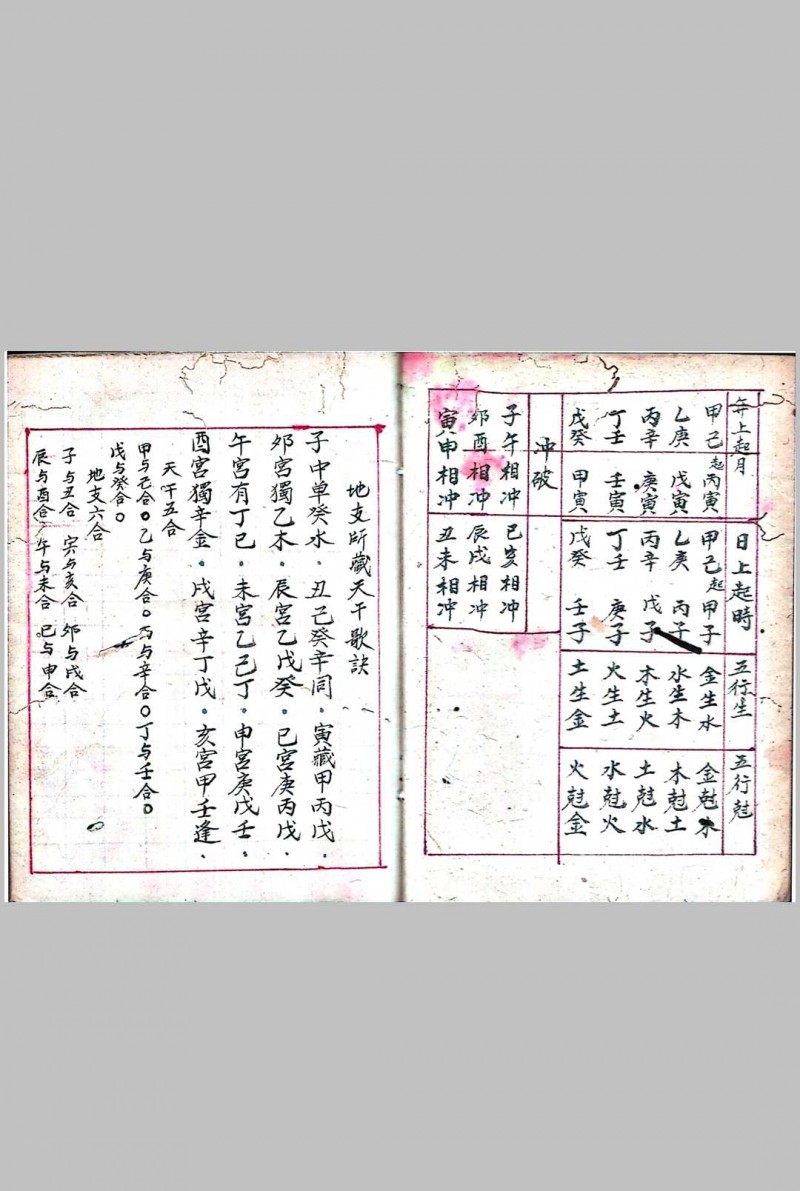 年上起月
甲己起丙寅
乙庚 戊寅
丙辛 庚寅
丁壬 壬寅
戊癸 甲寅
日上起時
甲己起甲子
乙庚 丙子
丙辛 戊子
丁壬 庚子
戊癸 壬子
五行生
金生水
水生木
木生火
火生土
土生金
五行尅
金尅木
木尅土
土尅水
水尅火
火尅金
冲破
子午相冲
卯酉相冲
寅申相冲
巳亥相冲
辰戌相冲
丑未相冲
地支所藏天干歌訣
子中单癸水。丑己癸辛同。寅藏甲丙戊、
夘宮獨乙木、辰宮乙戊癸。巳宮庚丙戊、
午宮有丁己、未宮乙己丁、申宮庚戊壬、
酉宮獨辛金、戌宮辛丁戊、亥宮甲壬逢、
天干五合
甲与己合。乙与庚合。丙与辛合。丁与壬合。
戊与癸合。
地支六合
子与丑合 寅与亥合 卯与戌合
辰与酉合 午与未合 巳与申合